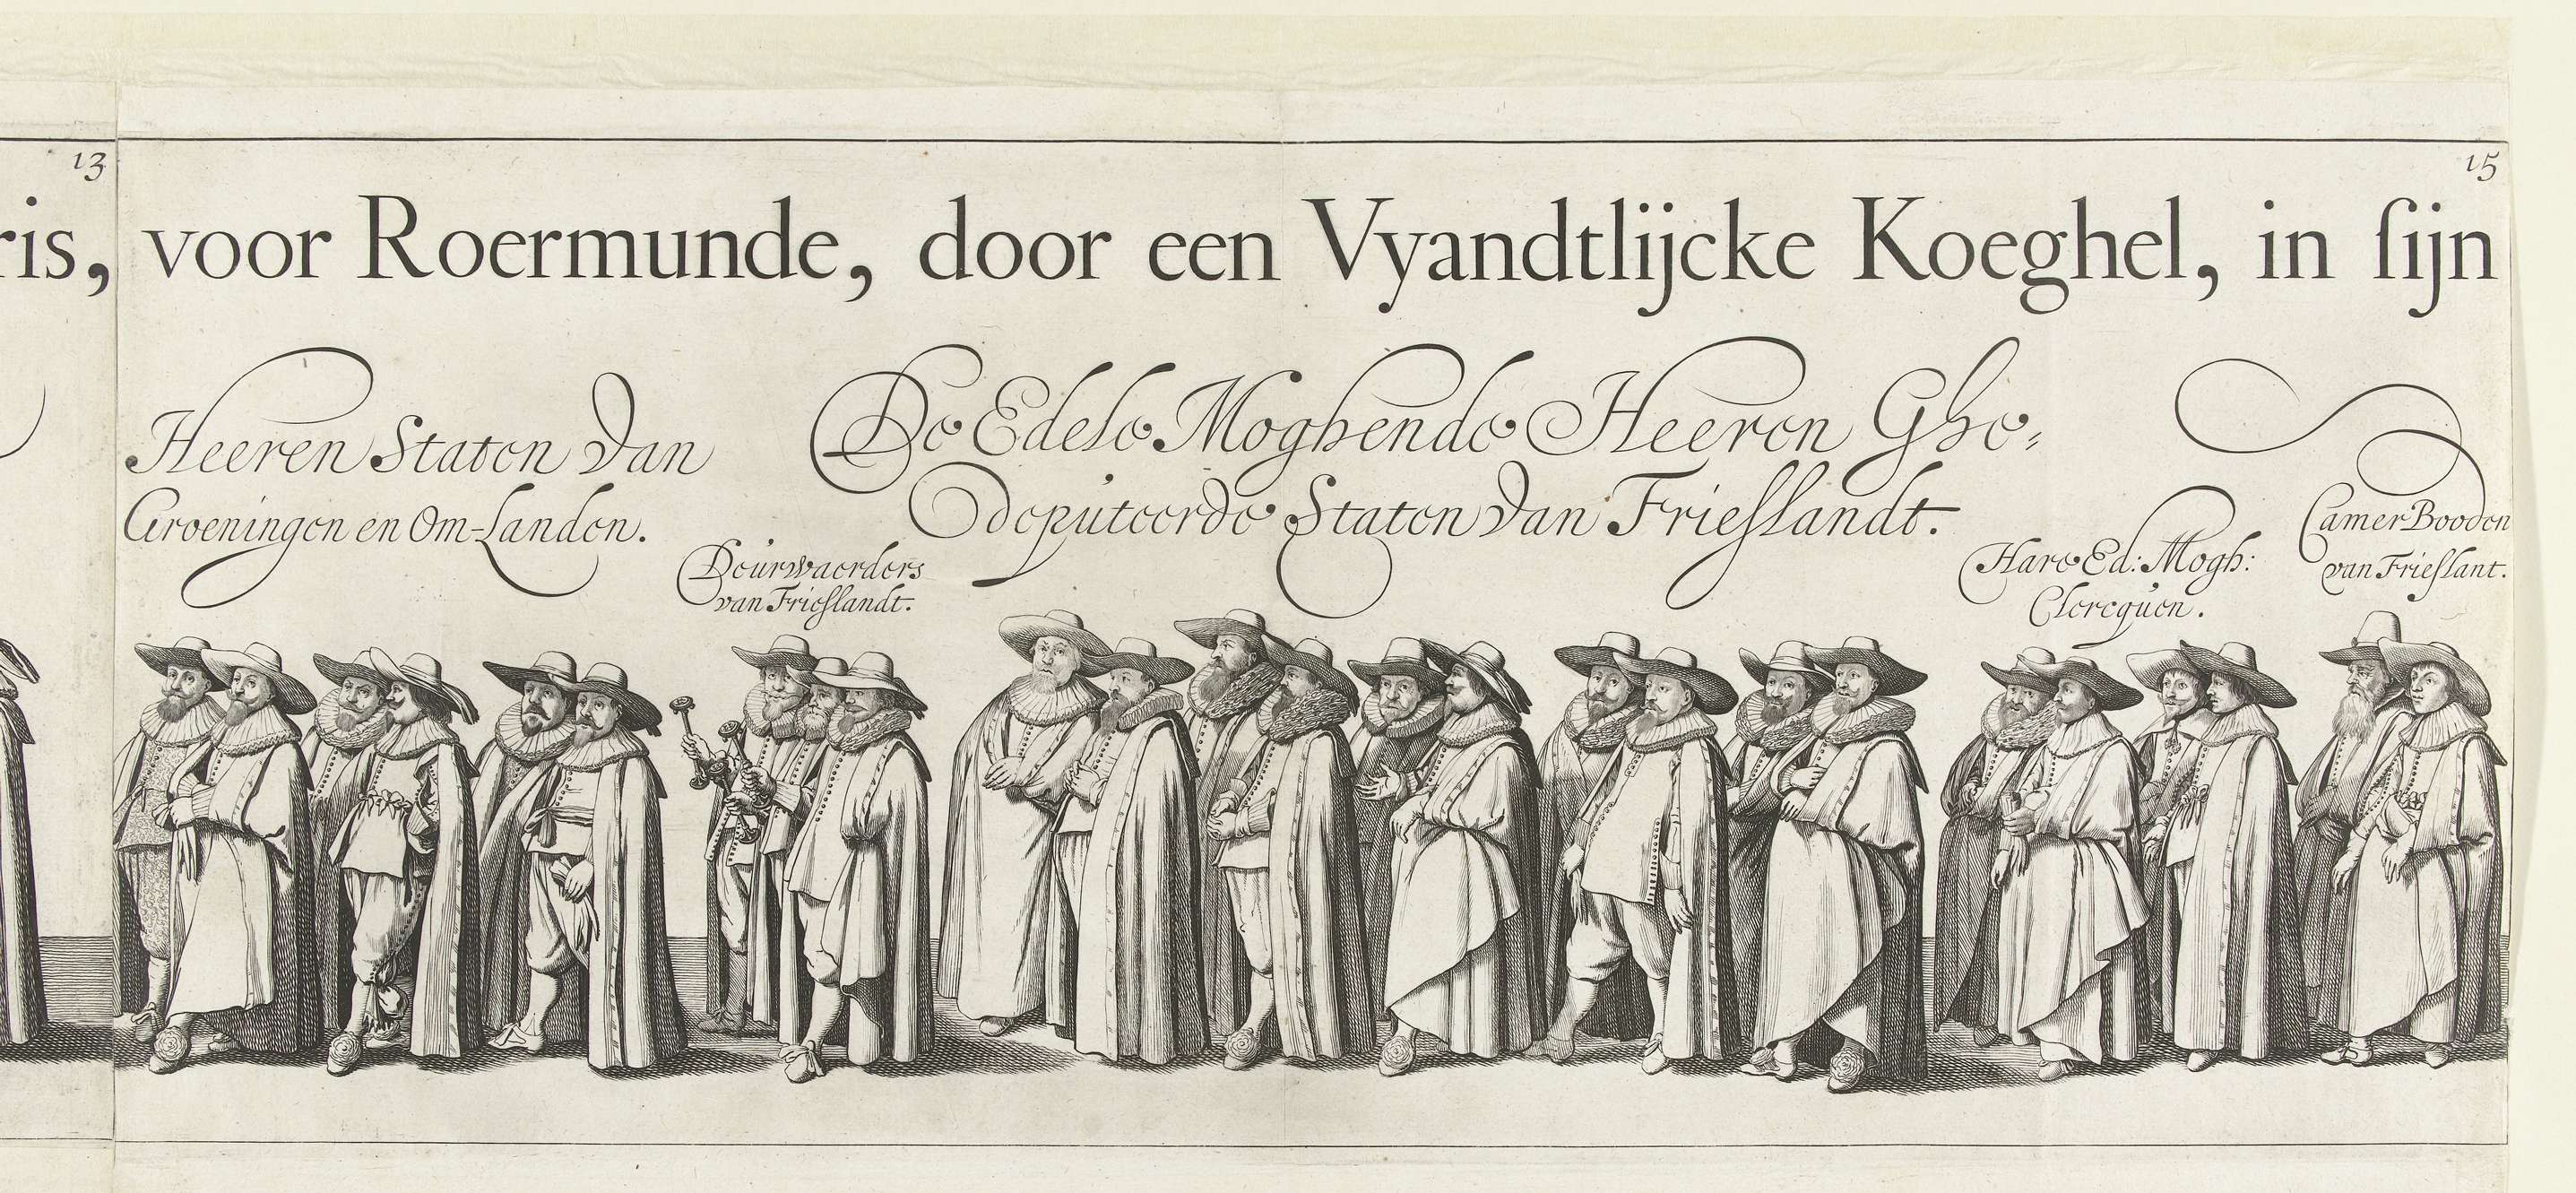 13
15
ris, voor Roermunde, door een Vyandtlijcke Koeghel, in ſijn
Heeren Staten van
Groeningen en Om-Landen.
Deurwaerders
van Frieſlandt.
De Edele Moghende Heeren Ghe⸗
deputeerde Staten van Frieſlandt.
Hare Ed: Mogh:
Clercquen.
Camer Booden
van Frieſlant.